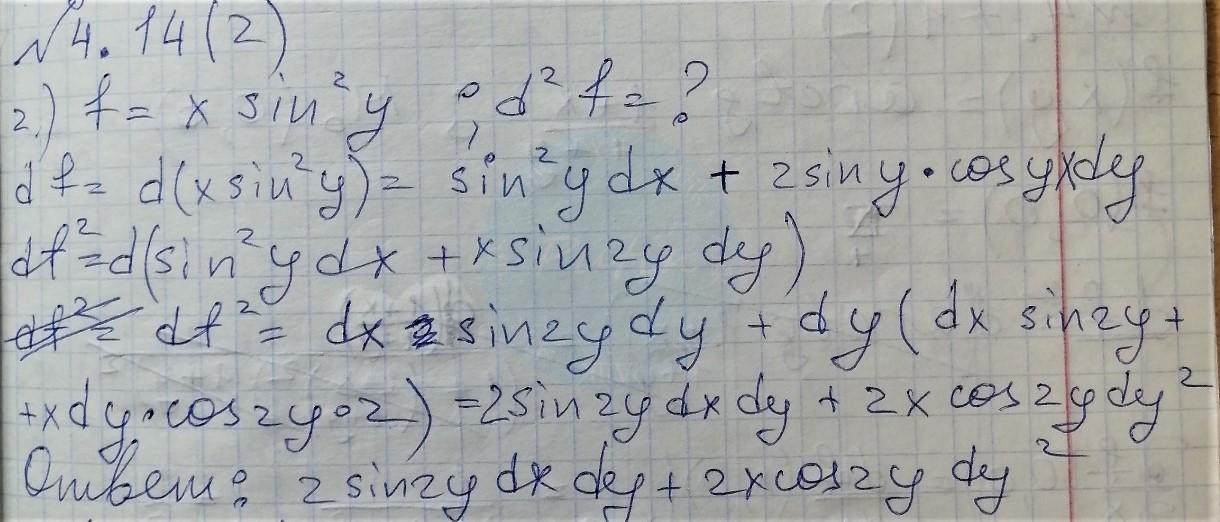 №4.14(2)
2.) f = x sin²y ; d²f = ?
df = d(x sin²y) = sin²y dx + 2 sin y · cos y x dy
df² = d(sin²y dx + x sin2y dy)
df² = df² = dx sin2y dy + dy(dx sin2y +
+x dy · cos2y · 2) = 2 sin2y dx dy + 2x cos2y dy²
Ответ: 2 sin2y dx dy + 2x cos2y dy²